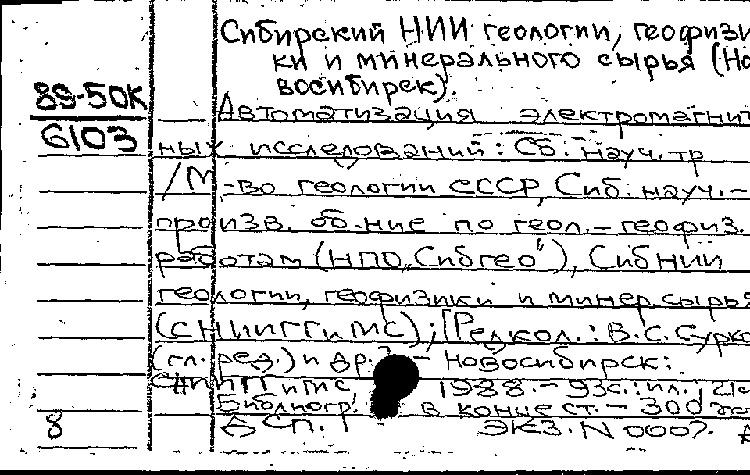 Сибирский НИИ геологии, геофизи
ки и минерального сырья (Но
восибирск).
89-50К
6103
Автоматизация электромагнит
ных исследований: Сб. науч. тр
/М-во геологии СССР, Сиб. науч.-
произв. об-ние по геол.-геофиз.
работам (НПО „Сибгео"), Сиб НИИ
геологии, геофизики и минер. сырья
(СНИИГГиМС); [Редкол.: В.С. Сурко
(гл. ред.) и др.] - Новосибирск:
СНИИГГиМС 1988. - 93с.: ил.; 21с
Библиогр. в конце ст. - 300 экз
8
ДСП. ЭКЗ. N 0007.